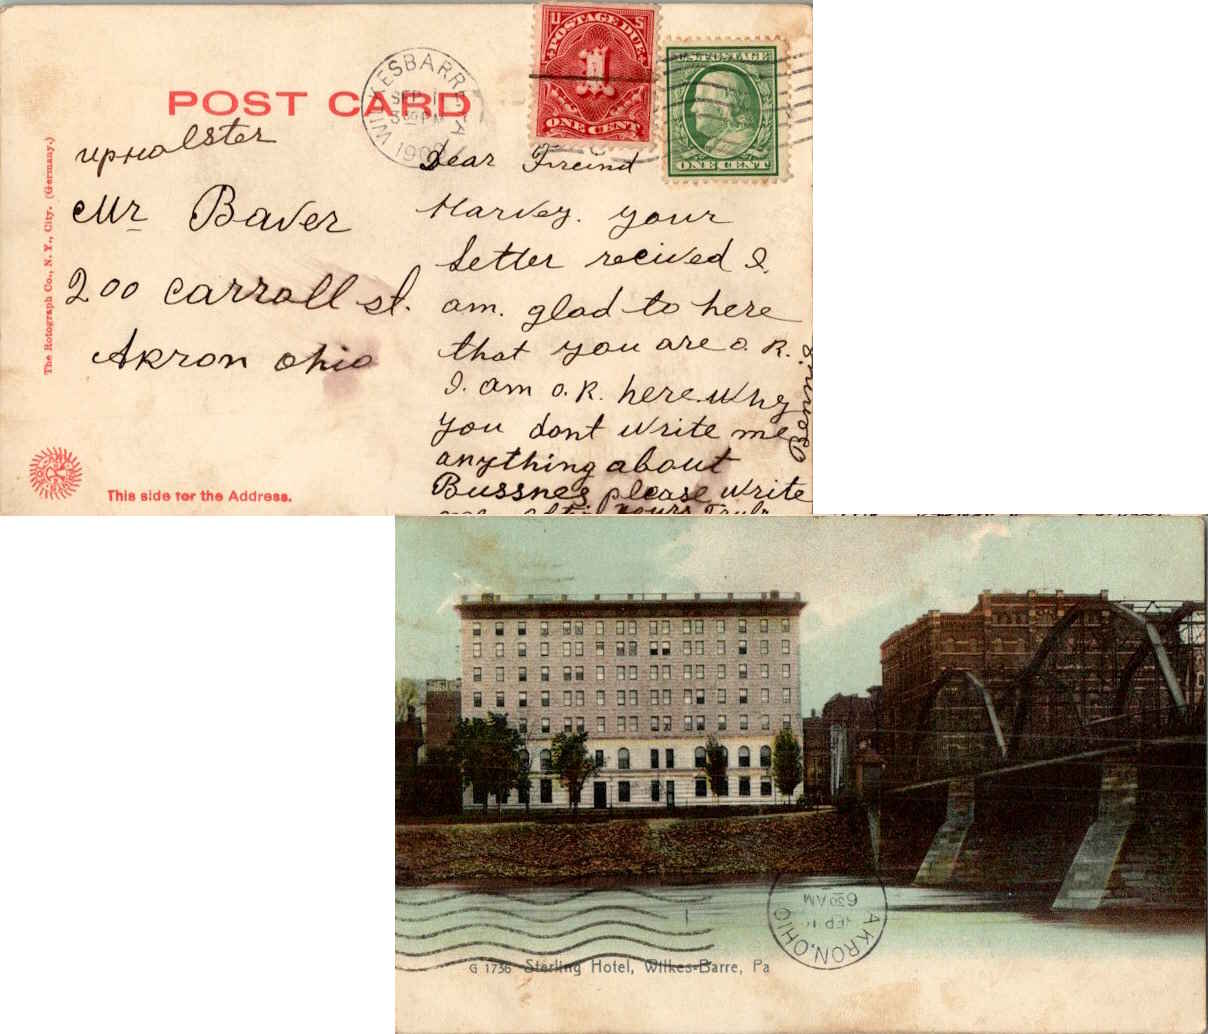 POST CARD
WILKESBARRE PA
SEP 1
3 30 PM
U S
POSTAGE DUE
1
ONE CENT
U.S. POSTAGE
ONE CENT
The Rotograph Co., N. Y., City. (Germany.)
upholster
Mr Baver
200 carroll st.
Akron ohio
This side for the Address.
Dear Freind
Harvey. your
letter recived I
am. glad to here
that you are o. K.
I. am o. K. here. why
you dont write me
anything about
Bussnes please write
yours
Bennie
AKRON, OHIO
SEP
6 30 AM
G 1736 Sterling Hotel, Wilkes-Barre, Pa